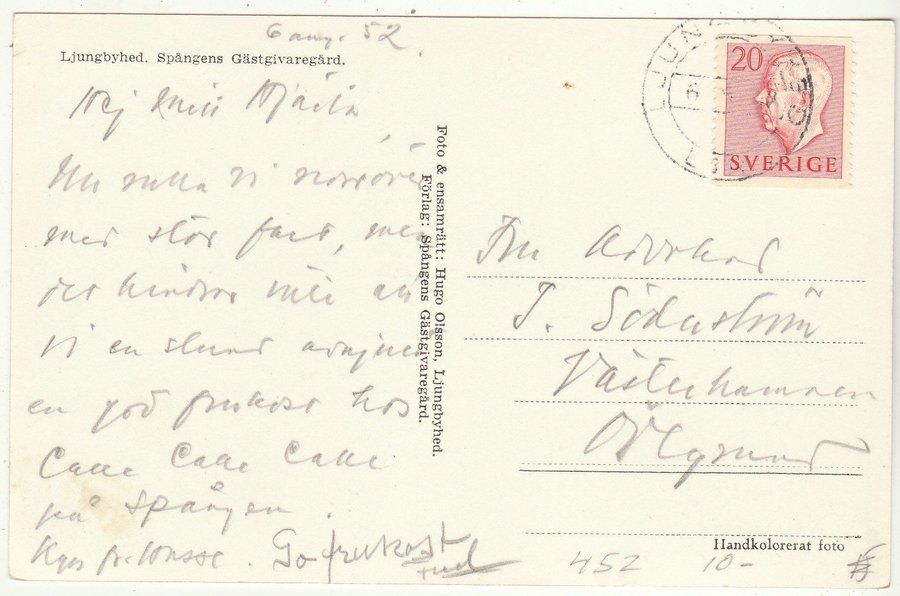 6 aug. 52.
Ljungbyhed. Spångens Gästgivaregård.
Hej Mitt Hjärta
Nu rulla vi norröver
med stor fart, men
det hindrar inte att
vi en stund avnjuter
en god frukost hos
Calle Calle Calle
på Spången.
Go frukost
Foto & ensamrätt: Hugo Olsson, Ljungbyhed.
Förlag: Spångens Gästgivaregård.
20
SVERIGE
Fru Advokat
T. Söderström
Västerhamnen
Öregrund
Handkolorerat foto
452 10-